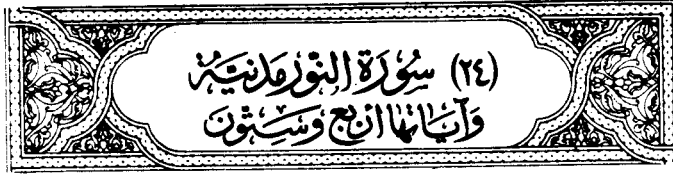 (٢٤) سُورَة النُّور مَدَنيَّة
وَآيَاتهَا أربَع وَسِتُّون